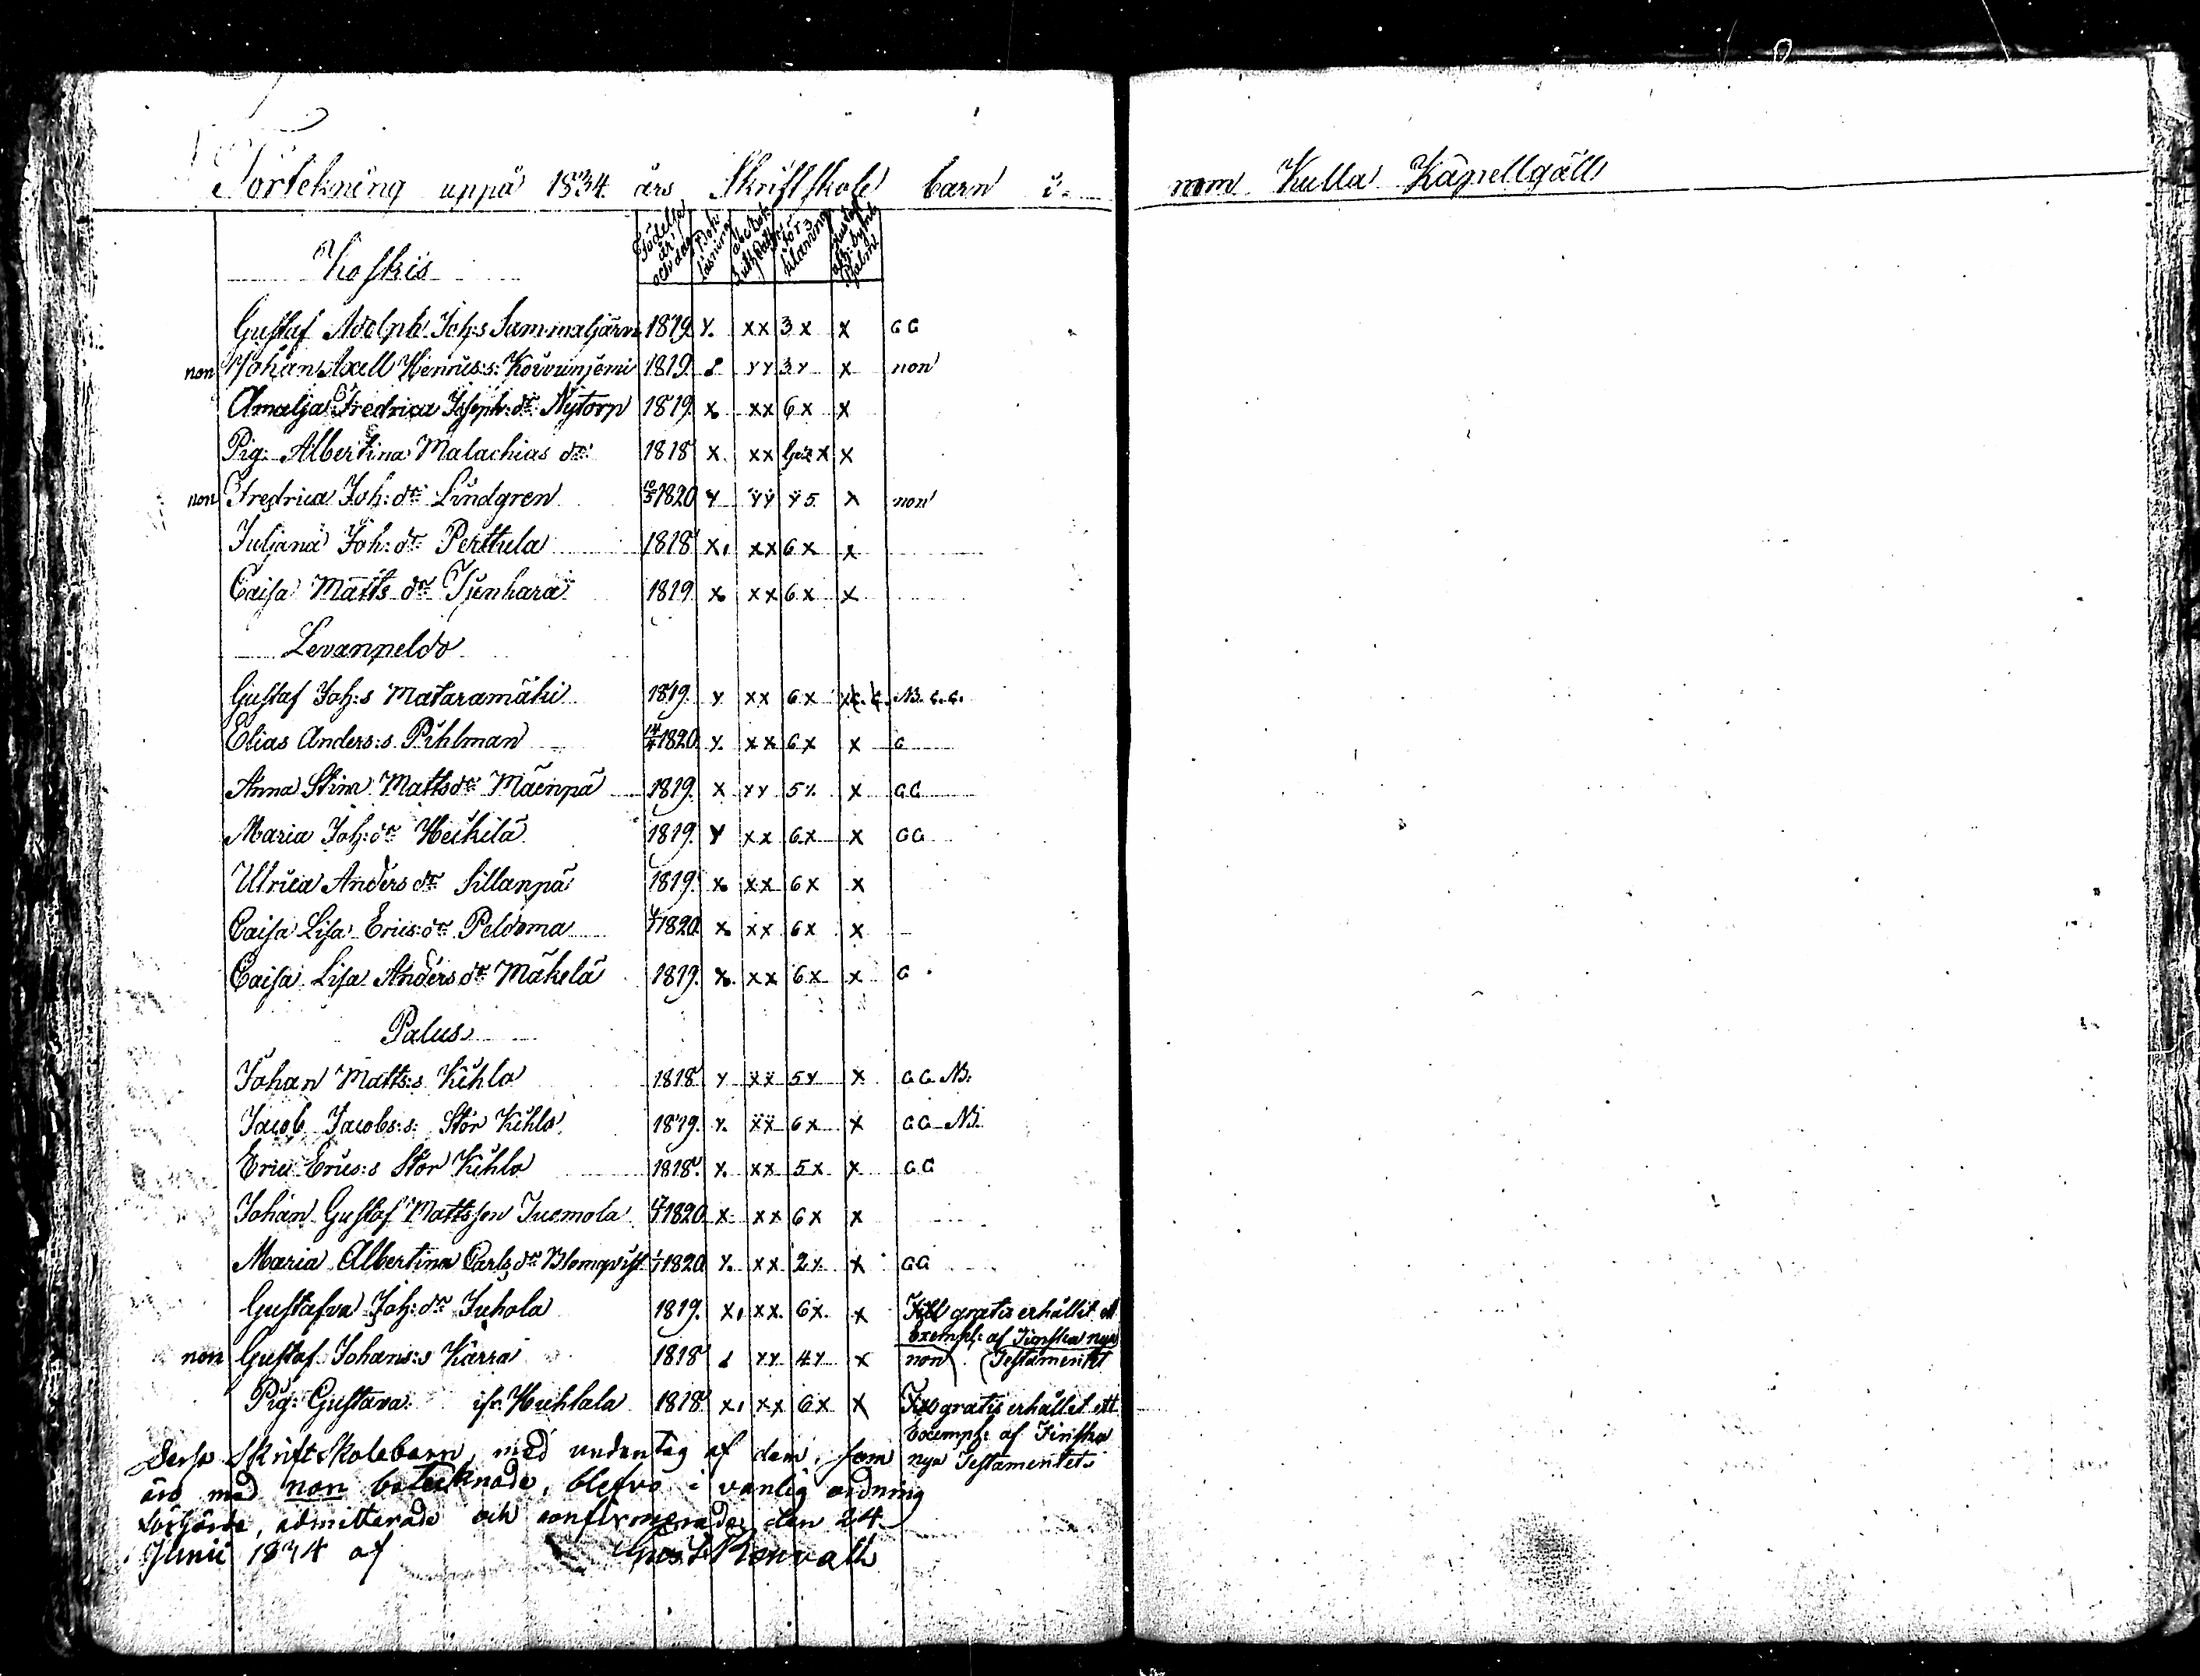 Förtekning uppå 1834 års Skriftskole barn i- nom Kulla Kapellgäll
Koskis
Födelse år och dag
Bok läsning
Gustaf Adolph Joh:s Sammaljärvi 1819 x. xx 3 x x a a
non Johan Axell Henrics:s: Korvuinjemi 1819. xx 3 x x non
Amalja Fredrica Joseph:dr Nytorp 1819 x xx 6 x x
Pig: Albertina Malachias dr: 1818 x. xx x x
non Fredrica Joh:dr Lindgren 1820 x xx x 5 x non
Juljana Joh:dr Perttula 1818 x, xx 6 x x
Caisa Matts dr Tjenhara 1819. x xx 6 x x
Levanpeldo
Gustaf Joh:s Mataramäki 1819. x xx 6 x NB. c.c.
Elias Anders:s Pihlman 1820 x. xx 6 x x a
Anna Stina Mattsdr Mäenpä 1819. x xx 5 x. x a a
Maria Joh:dr Heikilä 1819. x xx 6 x x a a
Ulrica Anders dr Sillanpä 1819. x xx 6 x x
Caisa Lisa Erics:dr Peldoma 1820 x xx 6 x x
Caisa Lisa Anders dr Mäkelä 1819. x. xx 6 x x a
Palus
Johan Matts:s Kihlo 1818 x xx 5 x x a a NB.
Jacob Jacobs:s: Stor Kihlo 1819. x. xx 6 x x a a NB.
Eric Erics:s Stor Kihlo 1818. x. xx 5 x x a a
Johan Gustaf Mattsson Tuomola 1820 x xx 6 x x
Maria Albertina Carls dr Blomqvist 1820 x. xx 2 x x a a
Gustafva Joh:dr Juhola 1819. x, xx. 6 x. x gratis erhållit ett
Exempl: af Finska nya
non Gustaf Johans:s Kärra 1818 xx 4 x x non (Testamentet
Pig: Gustava Huhtala 1818 x, xx 6 x x gratis erhållit ett
Exempl: af Finska
nya Testamentet
Desse Skriftskolebarn, med undantag af dem, som
äro med non betecknade, blefvo i vanlig ordning
förhörde, admitterade och confirmerade den 24
Junii 1834 af